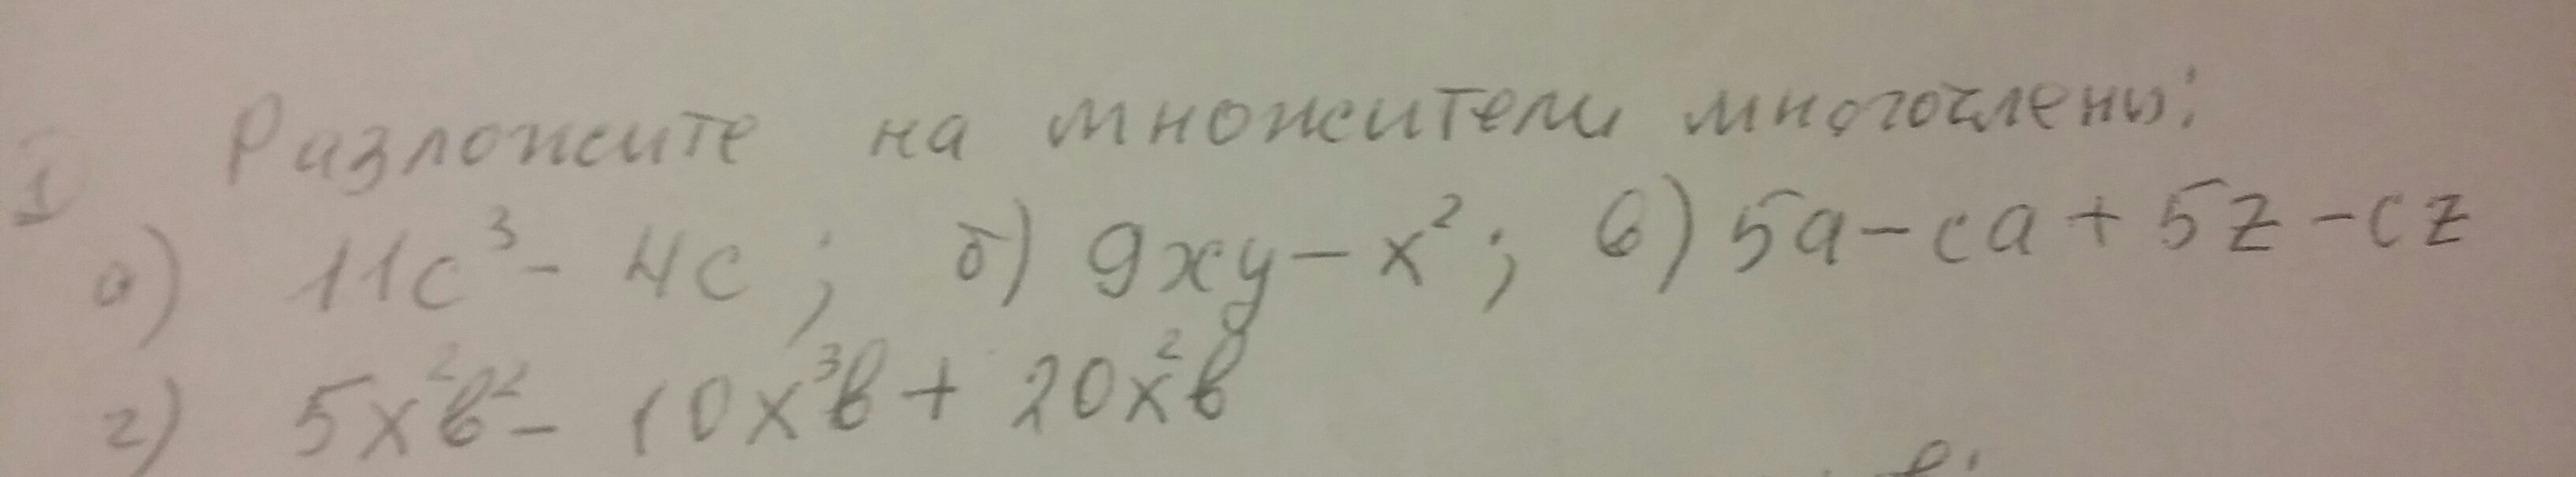 1 Разложите на множители многочлены:
а) 11c³ - 4c; б) 9xy - x²; в) 5a - ca + 5z - cz
г) 5x²b² - 10x³b + 20x²b